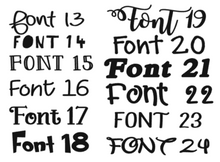 font 13
FONT 14
FONT 15
Font 16
Font 17
Font 18
Font 19
Font 20
Font 21
Font 22
FONT 23
FONT 24